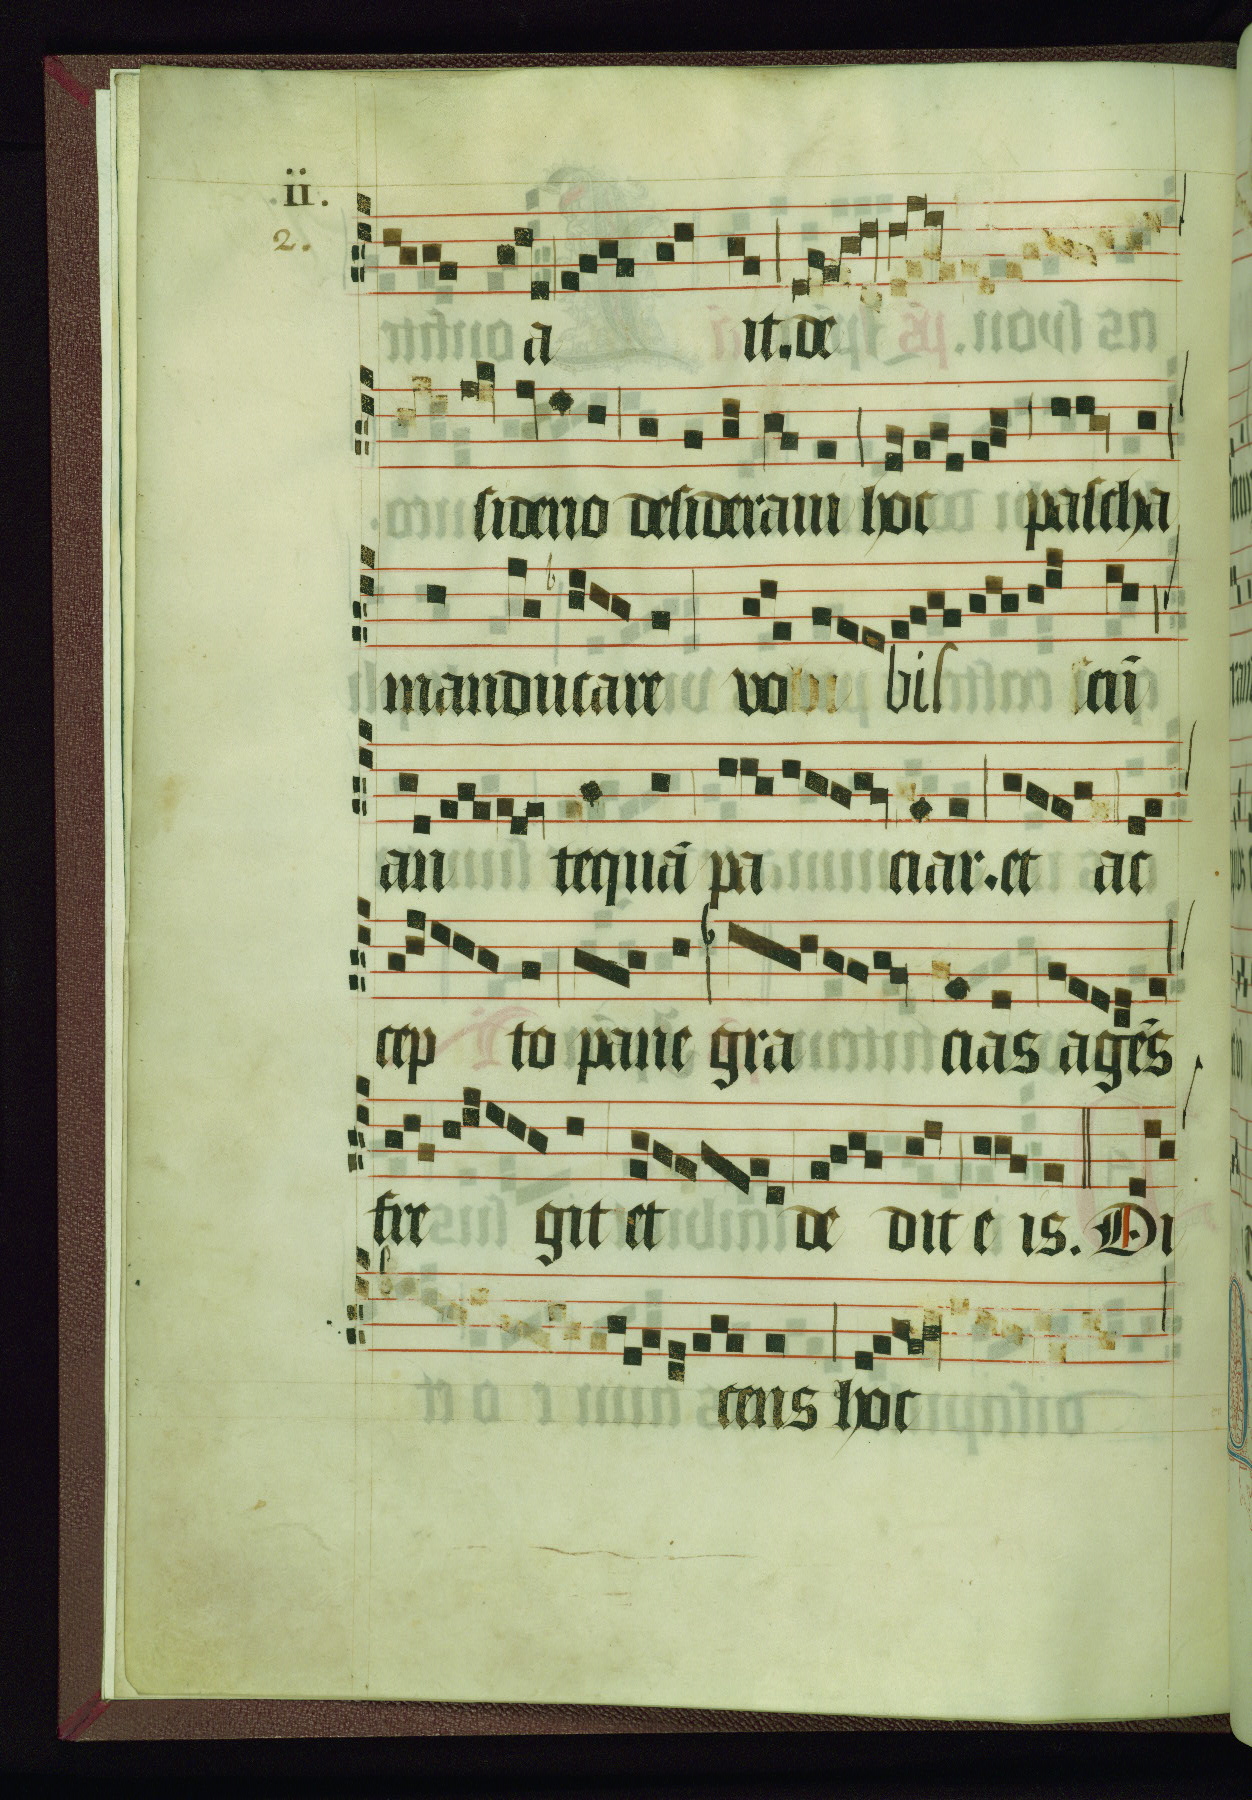 .ii.
2.
a it. de
siderio desideraui hoc pascha
manducare vo bis cū
an tequā pa ciar. et ac
cep to pane gra cias agēs
fre git et de dit e is. Di
cens hoc